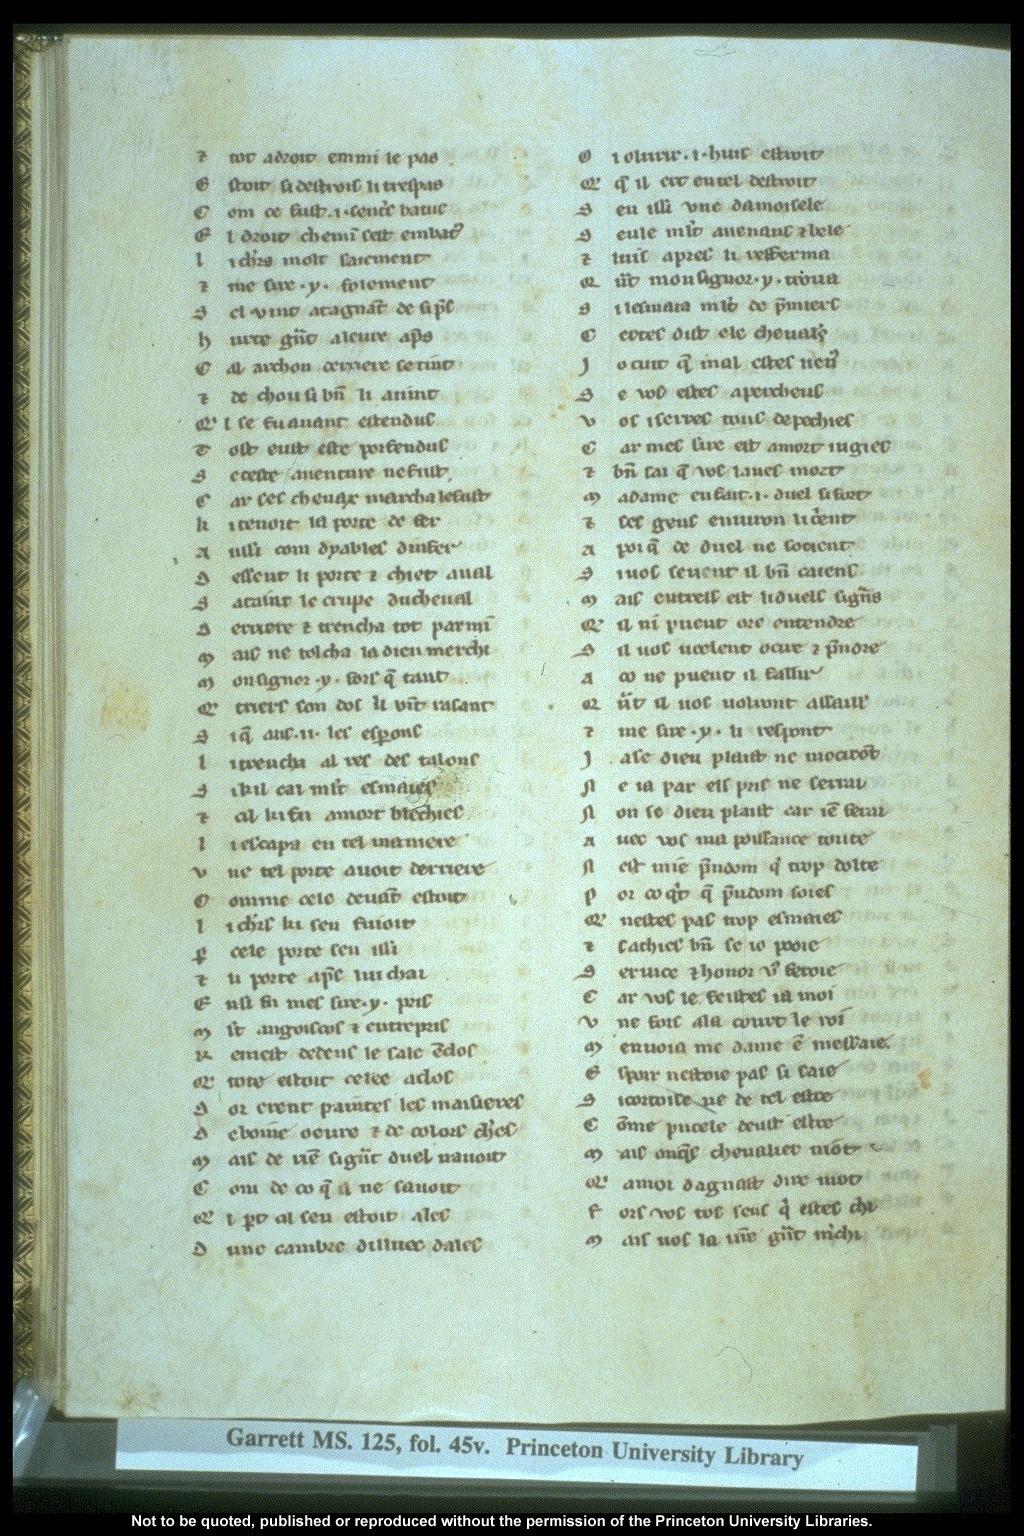 ⁊ tot adroit emmi le pas
E stoit si destrois li trespas
C om ce fust .i. sentˀs batus
E l droit chemī sest embatꝰ
l i chrs molt saicment
⁊ me sire .y. folement
S el vint atagnāt de si pˀs
h urte gn̄t aleure apˀs
C al archon derriere se tīnt
⁊ de chou si bn̄ li auint
Qˀ l se fu auant estendus
T ost eust este porfendus
S ceste auenture ne fust
C ar ses cheuax marcha le fust
k i tenoit la porte de fer
A ussi com dyables dinfer
D essent li porte ⁊ chiet aual
S ataint le crupe du cheual
D erriere ⁊ trencha tot parmi
M ais ne tolcha la dieu merchi
M onsignor .y. fors q̄ tant
Qˀ triers son dos li vīt rasant
S i q̄ ans .ii. les esp̄ons
l i trencha al res des talons
S i kil cai ml̄t esmaies
⁊ cil ki fu amort blechies
l i escapa en tel maniere
v ne tel porte auoit derriere
C omme cele deuāt estoit
l i chrs ki sen fuioit
P cele porte sen issi
⁊ li porte apˀs lui chai
E nsi fu mes sire .y. pris
M l̄t angoiscos ⁊ entrepris
R emest dedens le sale ēclos
Qˀ tote estoit celee a clos
D or erent paintes les maisieres
D e boine oeure ⁊ de colors chˀes
M ais de riē si gn̄t duel nauoit
C om de co q̄ il ne sauoit
Qˀ l pˀt cil sen estoit ales
D une cambre dilluec dales
O i olurir .i. huis estroit
Qˀ q̄ il ert en tel destroit
S en issi vne damoisele
S eule ml̄t auenans ⁊ bele
⁊ luis apres li refferma
Qˀ n̄t mon signor .y. troua
S i lesmaia ml̄t de pˀmiers
C ertes dist ele cheualrs
J o cuit q̄ mal estes venꝰ
S e vos estes apercheus
v os i serres tous depechies
C ar mes sire est amort iugies
⁊ bn̄ sai q̄ vos laues mort
M adame en fait .i. duel si fort
⁊ ses gens enuiron li criēt
A poi q̄ de duel ne socient
S i uos seuent il bn̄ caiens
M ais entrels est li duels si gn̄s
Qˀ il ni pueent ore entendre
S il uos uoelent ocire ⁊ pˀndre
A co ne pueent il faillir
Qˀ n̄t il uos uolront assaillˀ
⁊ me sire .y. li respont
J a se dieu plaist ne mocirōt
N e ia par els pris ne serrai
N on se dieu plaist car iē ferai
A uec vos ma poissance toute
N est mie pˀudom qˀ trop dolte
P or co qˀt q̄ pˀudom soies
Qˀ nestes pas trop esmaies
⁊ sachies bn̄ se io pooie
S eruice ⁊ honor vꝰ feroie
C ar vos le feistes ia moi
v ne fois ala court le roi
M enuoia me dame ē messaie
E spoir nestoie pas si saie
S i cortoise ne de tel estre
C ōme pucele deust estre
M ais onqˀs cheualier nīot
Qˀ amoi dagnast dire mot
F ors vos tos seus qˀ estes chi
M ais uos la uīe gn̄t mˀchi
Garrett MS. 125, fol. 45v. Princeton University Library
Not to be quoted, published or reproduced without the permission of the Princeton University Libraries.